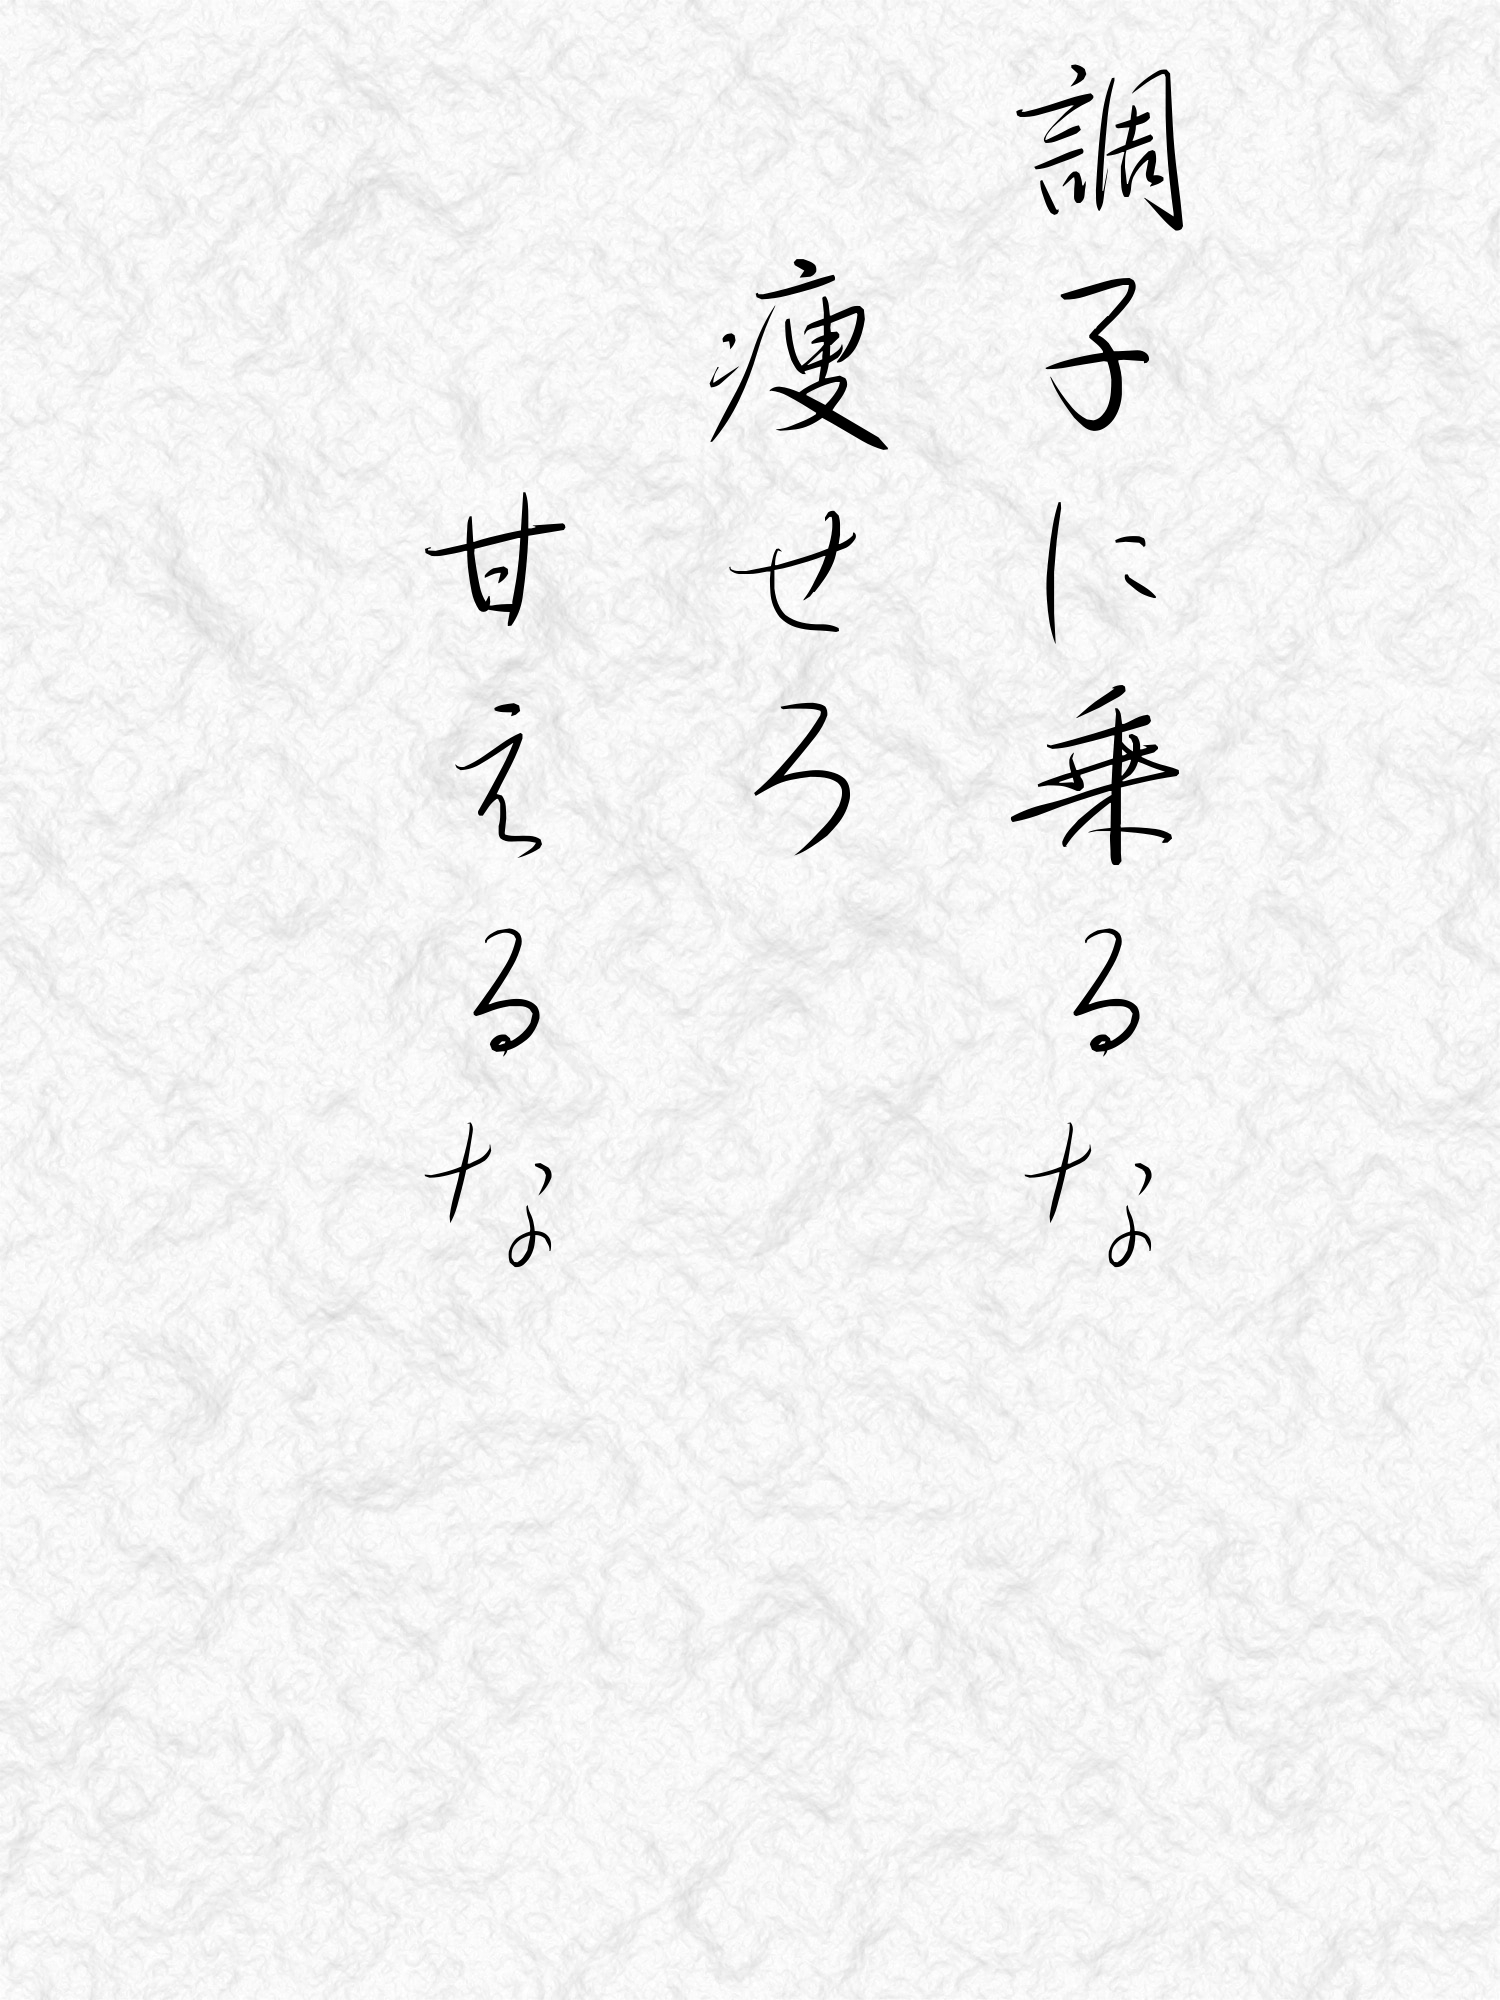 調子に乗るな
痩せろ
甘えるな